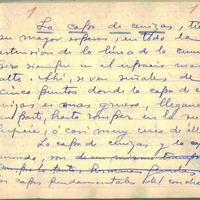 1 1
La capa de cenizas, ti
su mayor espesor, en todo la
extensión de la línea de la cum
pero siempre en el espacio mas
alto. Ahí, se ven señales de
cinco puntos donde la capa de c
nizas es mas gruesa, llegan
en parte, hasta romper en la su
perficie, ó casi muy cerca de ella
La capa de cenizas y la ca
son
las capas fundamentales del conche